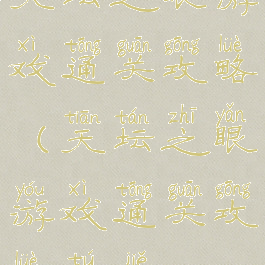 天坛之眼游
xì tōng guān gōng lüè
戏通关攻略
tiān tán zhī yǎn
（天坛之眼
yóu xì tōng guān gōng
游戏通关攻
lüè